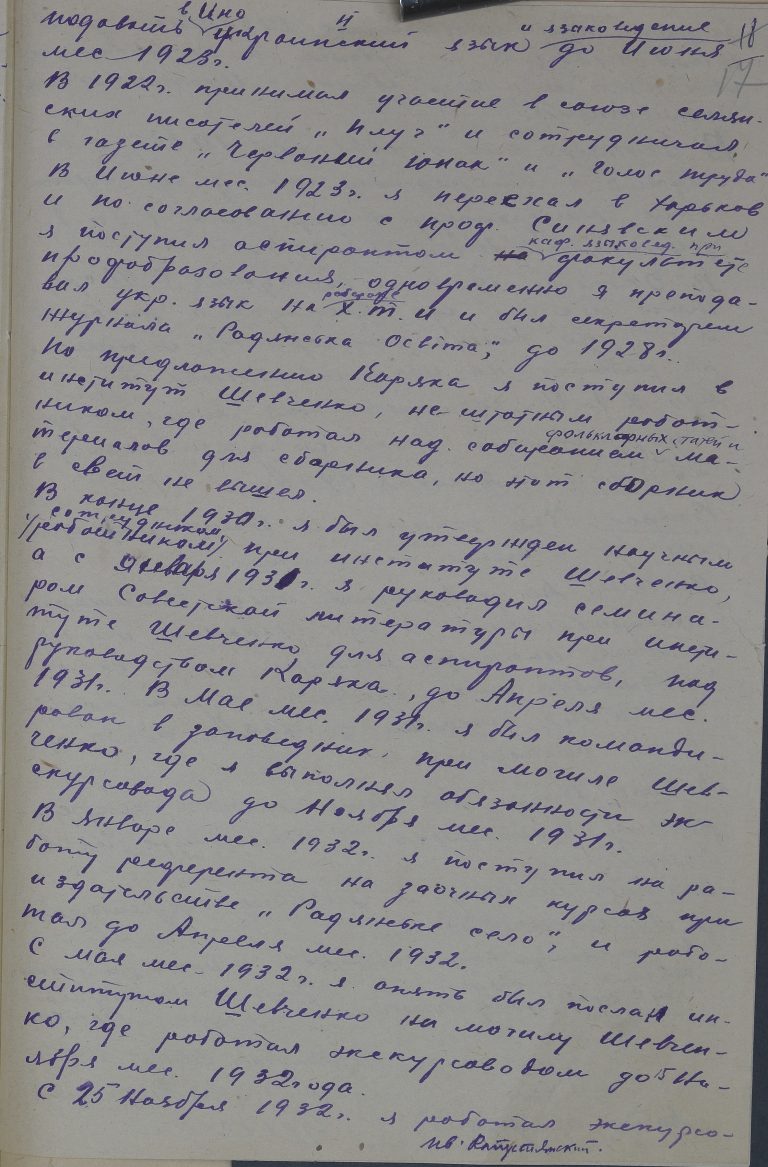 подовать в Ино украинский язык и языковедение до Июня
18
17
мес 1923г.
В 1922г. принимал участие в союзе селян-
ских писателей „Плуг" и сотрудничал
в газете „Червоний юнак" и „Голос труда"
В Июне мес. 1923г. я переехал в Харьков
и по согласованию с проф. Синявским
я поступил аспирантом каф. языковед. при факультете
профобразования, одновременно я препода-
вал укр. язык на рабфаке Х.Т.И и был секретарем
журнала „Радянська Освіта", до 1928г.
По предложению Коряка я поступил в
институт Шевченко, не штатным работ-
ником, где работал над собиранием фольклорных статей и ма-
териалов для сборника, но этот сборник
в свет не вышел.
В конце 1930г. я был утвержден научным
сотрудником
/работником/ при институте Шевченко,
а с января 1931г. я руководил семина-
ром Советской литературы при инсти-
туте Шевченко для аспирантов, под
руководством Коряка, до Апреля мес.
1931г. В Мае мес. 1931г. я был команди-
рован в заповедник, при могиле Шев-
ченко, где я выполнял обязанности эк-
скурсовода до Ноября мес. 1931г.
В январе мес. 1932г. я поступил на ра-
боту референта на заочных курсах при
издательстве „Радянське село", и рабо-
тал до Апреля мес. 1932.
С мая мес. 1932г. я опять был послан ин-
ститутом Шевченко на могилу Шевчен-
ко, где работал экскурсоводом до 15 Но-
ября мес. 1932 года.
С 25 Ноября 1932г. я работал экскурсо-
Ив. Капустянский.